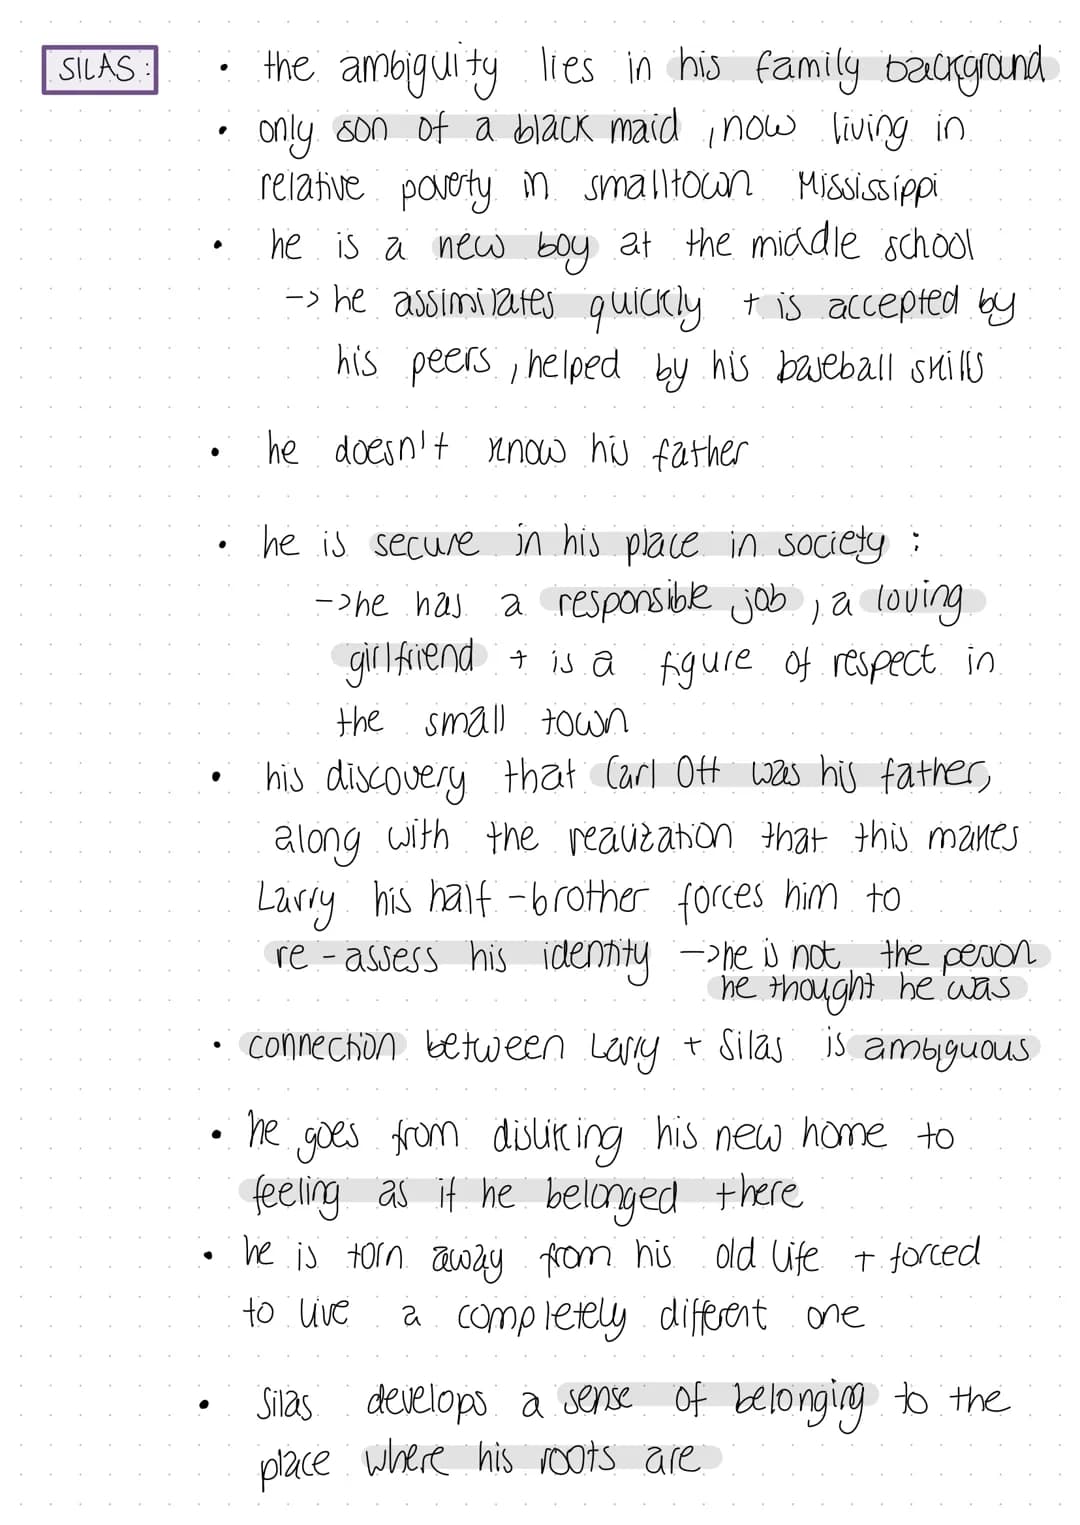 SILAS:
• the ambiguity lies in his family background
• only son of a black maid, now living in
relative poverty in smalltown Mississippi
• he is a new boy at the middle school
-> he assimilates quickly + is accepted by
his peers, helped by his baseball skills
• he doesn't know his father
• he is secure in his place in society:
->he has a responsible job, a loving
girlfriend + is a figure of respect in
the small town
• his discovery that Carl Ott was his father,
along with the realization that this makes
Larry his half-brother forces him to
re-assess his identity ->he is not the person
he thought he was
• connection between Larry + Silas is ambiguous
• he goes from disliking his new home to
feeling as if he belonged there
• he is torn away from his old life + forced
to live a completely different one
• Silas develops a sense of belonging to the
place where his roots are